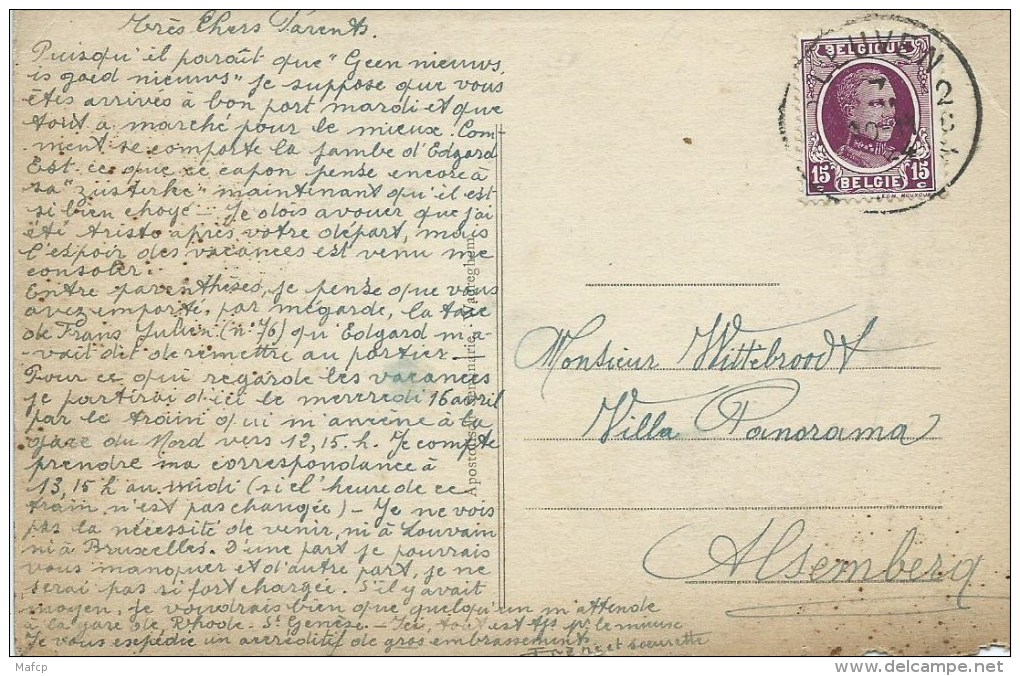 Très Chers Parents.
Puisqu'il paraît que "Geen nieuws,
is goed nieuws" je suppose que vous
êtes arrivés à bon port mardi et que
tout a marché pour le mieux. Com-
ment se comporte la jambe d'Edgard
Est-ce que ce capon pense encore à
sa "zusterke" maintenant qu'il est
si bien choyé — Je dois avouer que j'ai
été triste après votre départ, mais
l'espoir des vacances est venu me
consoler.
Entre parenthèses, je pense que vous
avez emporté, par mégarde, la taie
de Frans Julien (n: 76) qu'Edgard m'a-
vait dit de remettre au portier —
Pour ce qui regarde les vacances
je partirai d'ici le mercredi 16 avril
par le train qui m'amène à la
gare du Nord vers 12,15 h. Je compte
prendre ma correspondance à
13,15 h au midi (si l'heure de ce
train n'est pas changée) — Je ne vois
pas la nécessité de venir, ni à Louvain
ni à Bruxelles. D'une part je pourrais
vous manquer et d'autre part, je ne
serai pas si fort chargée. S'il y avait
moyen, je voudrais bien que quelqu'un m'attende
à la gare de Rhode-St Genèse — Ici, tout est tjs pr le mieux
Je vous expédie un accréditif de gros embrassements
et sœurette
Apostolische Waereghem
BELGIQUE
15 15
BELGIE
LEUVEN 2
Monsieur Wittebroodt
Villa Panorama
Alsemberg
Mafcp
delcampe.net